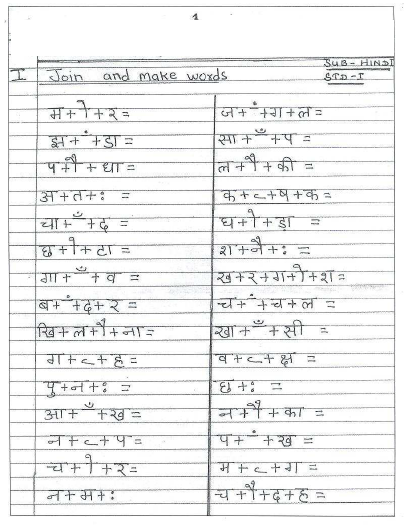 1
SUB-HINDI
I Join and make words STD-I
म+ो+र=
झ+ं+डा=
प+ौ+धा=
अ+त+ः =
चा+ँ+द =
छ+ो+टा=
गा+ँ+व =
ब+ं+द+र =
खि+ल+ौ+ना=
ग+ृ+ह =
पु+न+ः =
आ+ँ+ख =
न+ृ+प =
च+ो+र=
न+म+ः
ज+ं+ग+ल=
सा+ँ+प =
ल+ौ+की =
क+ृ+ष+क=
घ+ो+ड़ा =
श+नै+ः =
ख+र+ग+ो+श=
च+ं+च+ल =
खा+ँ+सी =
व+ृ+क्ष =
छ+ः =
न+ौ+का =
प+ं+ख =
म+ृ+ग =
च+ौ+द+ह=